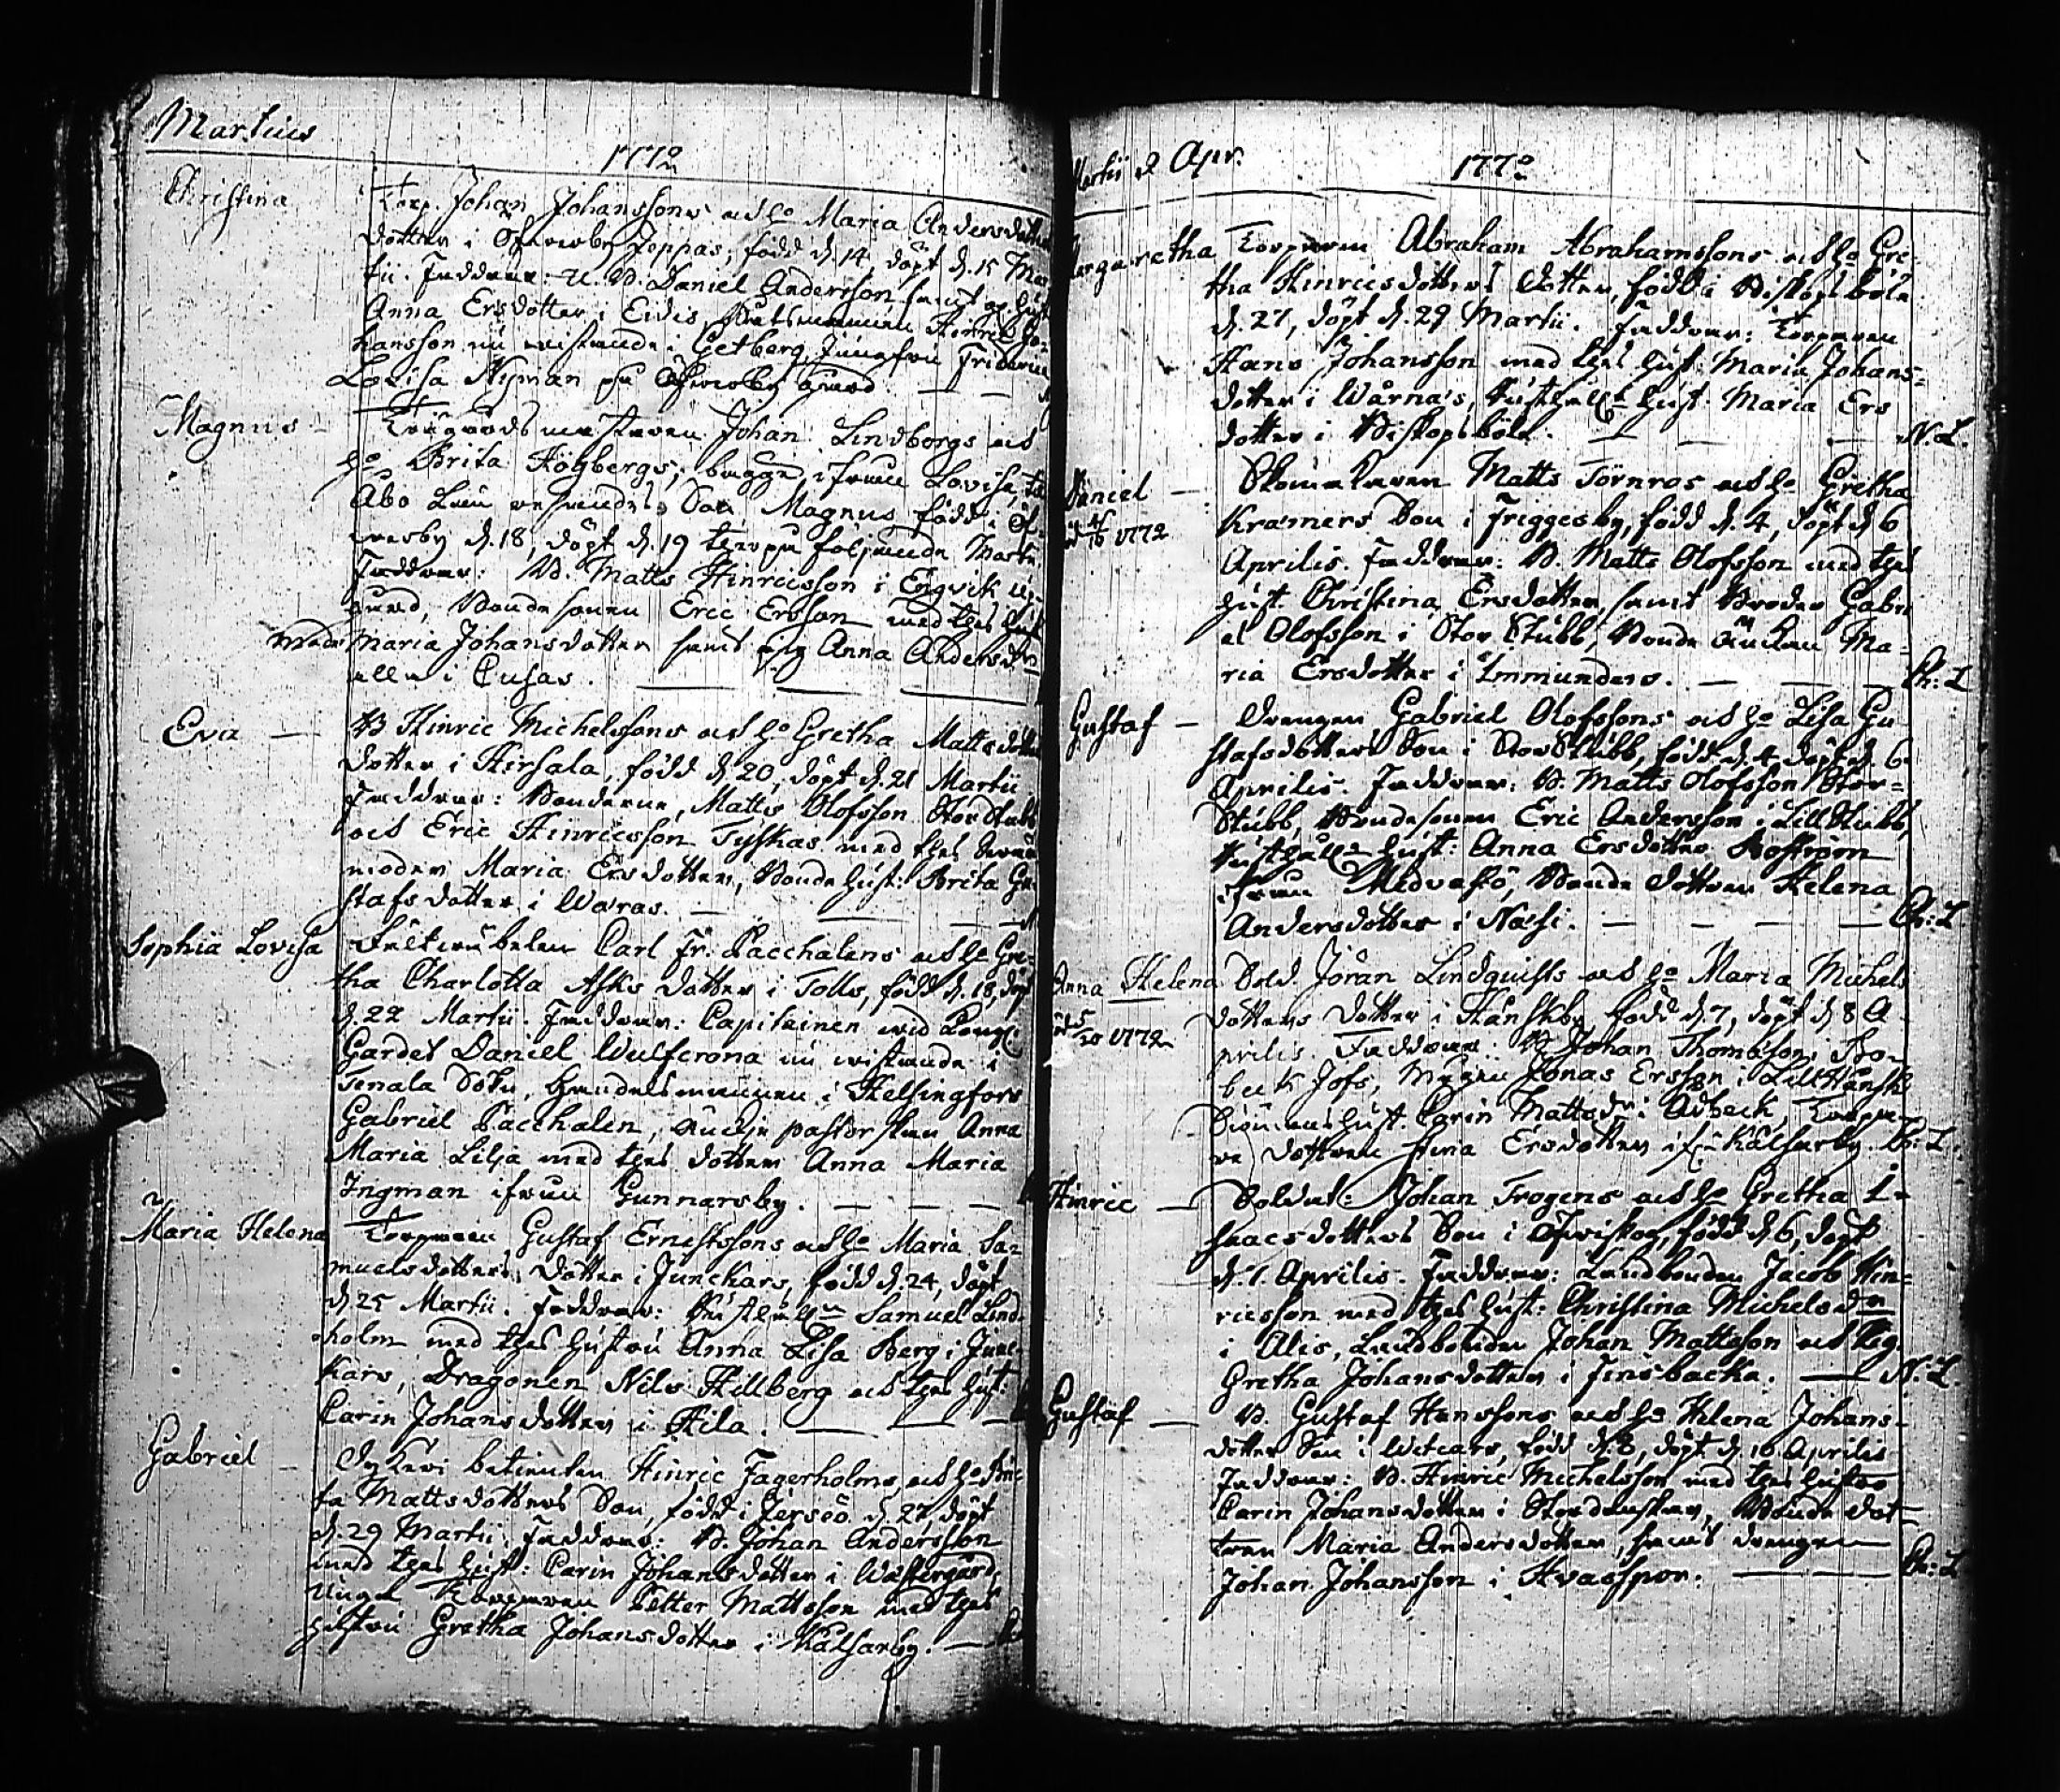 Martius
1772
Christina
Torp. Johan Johanssons och h:o Maria Andersdotters
dotter i Öfwerby Joppas, född d. 14, döpt d. 15 Mar
tii. Faddrar: U. B. Daniel Andersson samt pig. hust
Anna Ersdotter i Eidis, Hinric Jo-
hansson nu wistande i Getberg, Jungfru Frideric
Lovisa Nyman på Öfwerby gård
Magnus
Johan Lindborgs och
h:o Brita Högbergs, bägge ifrån Lovisa, til
Åbo Län resandes, Son Magnus född i Öf-
werby d. 18, döpt d. 19 therpå följande Martii
Faddrar: B. Matts Hinricsson i Engvik
gård, Bondesonen Eric Ersson med thes hust
Maria Johansdotter samt pig Anna Andersd:r
alla i Cusas.
Eva
B Hinric Michelssons och h:o Gretha Mattsdotters
dotter i Hirsala, född d. 20, döpt d. 21 Martii
Faddrar: Bönderne, Matts Olofsson Stor Stubb
och Eric Hinricsson Tyskas med thes
moder Maria Ersdotter, Bonde hust: Brita Gu
stafsdotter i Waras.
Sophia Lovisa
Carl Fr. Pacchalens och h:o Gre-
tha Charlotta Asks dotter i Tolls, född d. 18, döpt
d. 22 Martii. Faddrar: Capitainen wid Kongl.
Gardet Daniel Wulfcrona nu wistande i
Tenala Sokn, Handelsmannen i Helsingfors
Gabriel Pacchalen, Enckje pastorskan Anna
Maria Lilja med thes dotter Anna Maria
Ingman ifrån Gunnarsby.
Maria Helena
Torparen Gustaf Ernestssons och h:o Maria Sa-
muelsdotters, dotter i Junckars, född d. 24, döpt
d. 25 Martii. Faddrar: Samuel Lind-
holm med thes hustru Anna Lisa Berg i Junc-
kars, Dragonen Nils Hillberg och thes hust:
Carin Johansdotter i Hila.
Gabriel
betienten Hinric Fagerholms och h:o
ta Mattsdotters Son, född i Jersö d. 27 döpt
d. 29 Martii. Faddrar: B. Johan Andersson
med thes hust: Carin Johansdotter i Wästergård,
Torparen Petter Mattsson med thes
hustru Gretha Johansdotter i Kalsarby.
Martii & Apr.
1772
Margaretha
Torparen Abraham Abrahamssons och h:o Gre-
tha Hinricsdotters dotter, född i Biskopsböle
d. 27, döpt d. 29 Martii. Faddrar: Torparen
Hans Johansson med thes hust: Maria Johans-
dotter i Wårnäs, hust: Maria Ers
dotter i Biskopsböle. N. L.
Daniel
1772
Skomakaren Matts Törnros och h:o Gretha
Kramers Son i Friggesby, född d. 4, döpt d. 6
Aprilis. Faddrar: B. Matts Olofsson med thes
hust. Christina Ersdotter, samt Broder Gabri
el Olofsson i Stor Stubb, Bonde Änckan Ma-
ria Ersdotter i Immunders. Ch: L
Gustaf
Drengen Gabriel Olofssons och h:o Lisa Gu
stafsdotters Son i StorStubb, född d. 4 döpt d. 6
Aprilis. Faddrar: B. Matts Olofsson Stor-
Stubb, Bondesonen Eric Andersson i LillStubb,
hust: Anna Ersdotter Boström
ifrån Medvastö, Bonde dottren Helena
Andersdotter i Näsi. Ch: L
Anna Helena
1772
Sold. Jöran Lindquists och h:o Maria Michels
dotters dotter i Hånskby född d. 7, döpt d. 8 A
prilis. Faddrar: B Johan Thomasson i Bo-
beck Jofs, Jonas Ersson i Lill Hånsk
hust. Carin Mattsd:r i Odbeck, Torpa-
re dottren Stina Ersdotter if:n Kalsarby. Ch: L.
Hinric
Soldat: Johan Trogens och h:o Gretha I-
saacsdotters Son i Öfwiskog, född d. 6, döpt
d. 7. Aprilis. Faddrar: Landbonden Jacob Hin-
ricsson med thes hust: Christina Michelsd:r
i Alis, Landbonden Johan Mattsson och Pig.
Gretha Johansdotter i Finsbacka. N. L.
Gustaf
B. Gustaf Hanssons och h:o Helena Johans-
dotter Son i född d. 8, döpt d. 10 Aprilis
Faddrar: B. Hinric Michelsson med thes hustru
Carin Johansdotter i Bonde dot-
tren Maria Andersdotter, samt drengen
Johan Johansson i Hvasspor. Ch: L